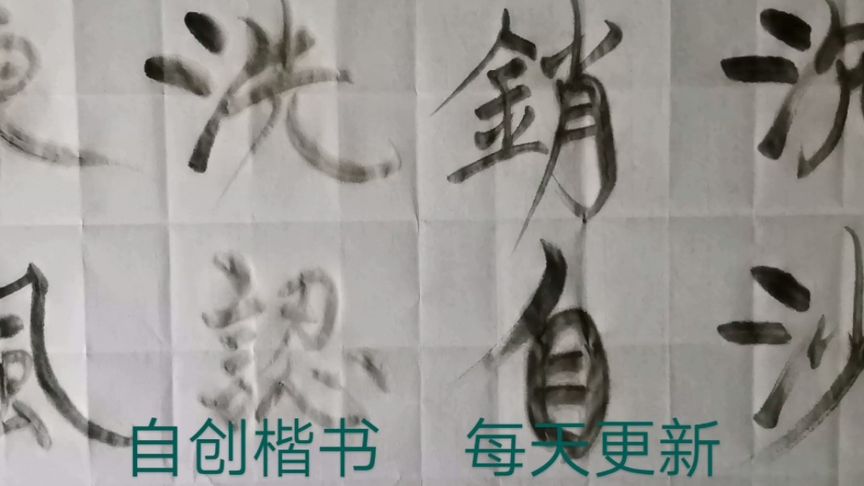 沙
銷自
洗認
風
自创楷书 每天更新